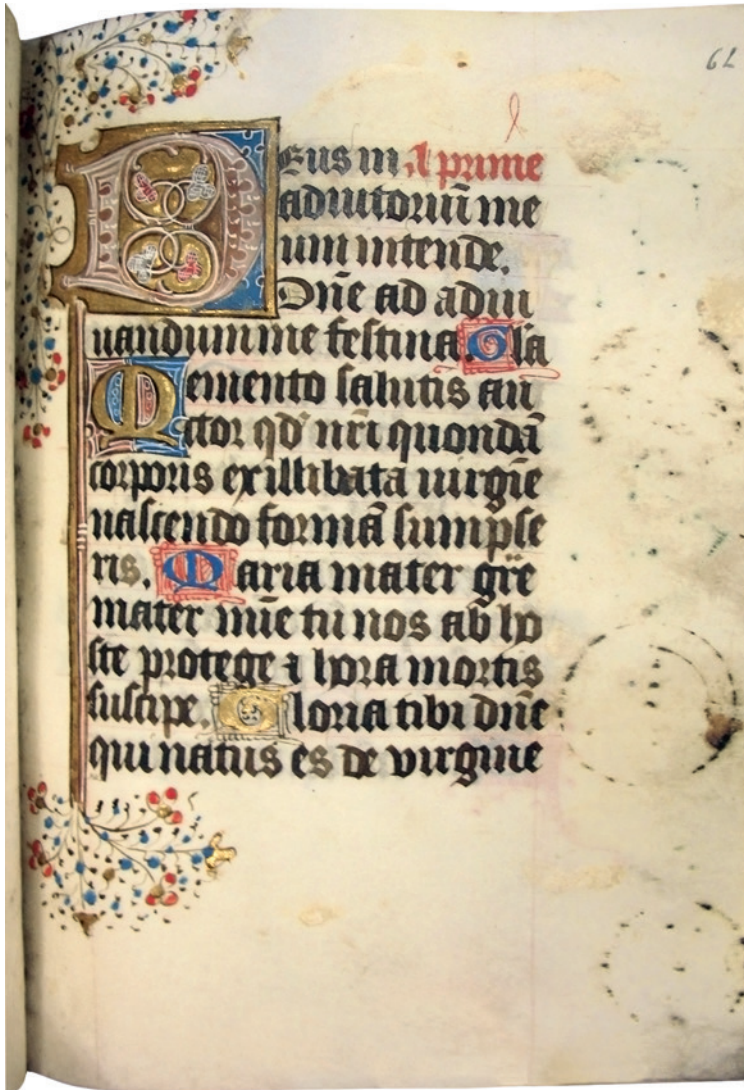 62
Deus in A prime
adiutoriū me
um intende.
Dn̄e ad adiu
uandum me festina. Gl̄a
Memento salutis au
ctor qd̛ nr̄i quondā
corporis ex illibata uirgīe
nascendo formā sumpse
ris. Maria mater gr̄e
mater mīe tu nos ab ho
ste protege ⁊ hora mortis
suscipe. Gloria tibi dn̄e
qui natus es de virgine